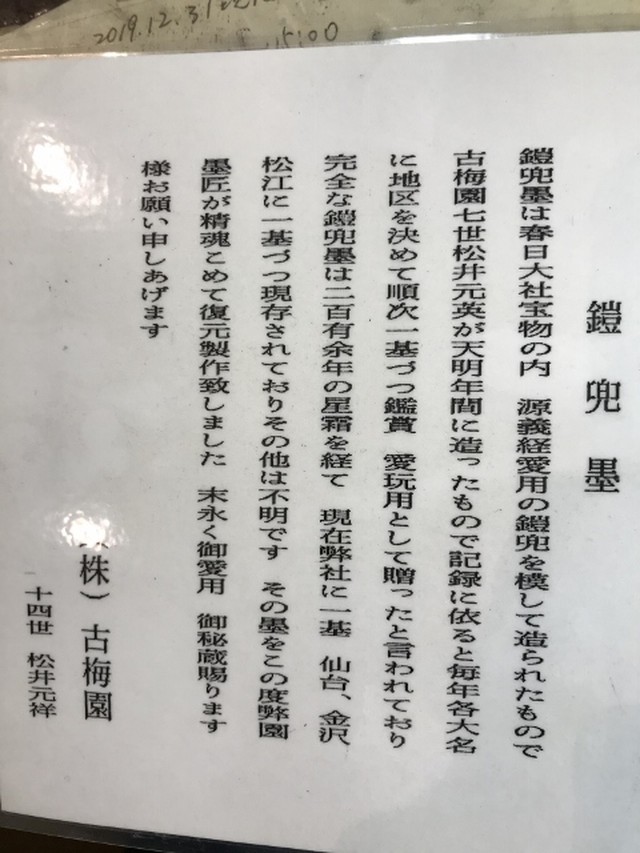 2019.12.31
15:00
鎧兜墨
鎧兜墨は春日大社宝物の内　源義経愛用の鎧兜を模して造られたもので
古梅園七世松井元英が天明年間に造ったもので記録に依ると毎年各大名
に地区を決めて順次一基づつ鑑賞　愛玩用として贈ったと言われており
完全な鎧兜墨は二百有余年の星霜を経て　現在弊社に一基　仙台、金沢
松江に一基づつ現存されておりその他は不明です　その墨をこの度弊園
墨匠が精魂こめて復元製作致しました　末永く御愛用　御秘蔵賜ります
様お願い申しあげます
（株）古梅園
十四世　松井元祥